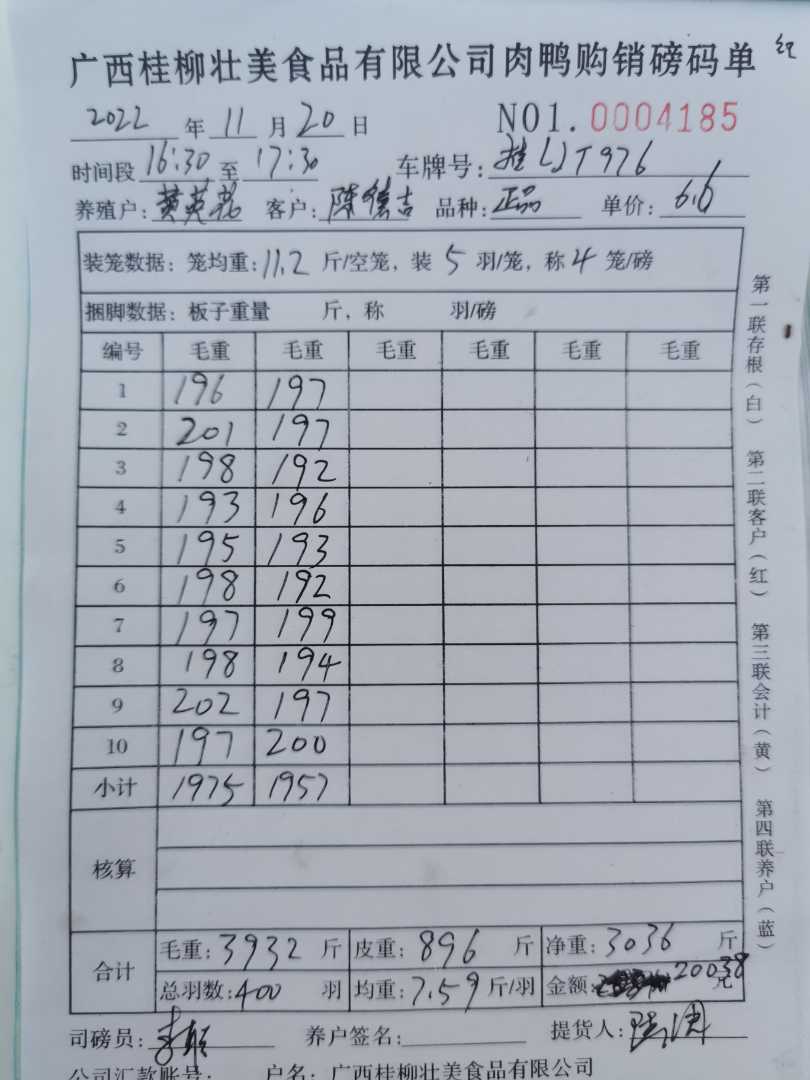 广西桂柳壮美食品有限公司肉鸭购销磅码单 红
2022 年 11 月 20 日 NO1. 0004185
时间段 16:30 至 17:30 车牌号: 桂LJT976
养殖户: 黄英花 客户: 陈德吉 品种: 正品 单价: 6.6
装笼数据: 笼均重: 11.2 斤/空笼, 装 5 羽/笼, 称 4 笼/磅
捆脚数据: 板子重量 斤, 称 羽/磅
编号 毛重 毛重 毛重 毛重 毛重 毛重
1 196 197
2 201 197
3 198 192
4 193 196
5 195 193
6 198 192
7 197 199
8 198 194
9 202 197
10 197 200
小计 1975 1957
核算
合计
毛重: 3932 斤 皮重: 896 斤 净重: 3036 斤
总羽数: 400 羽 均重: 7.59 斤/羽 金额: 20038 元
司磅员: 养户签名: 提货人:
公司汇款账号: 户名: 广西桂柳壮美食品有限公司
第一联存根(白) 第二联客户(红) 第三联会计(黄) 第四联养户(蓝)